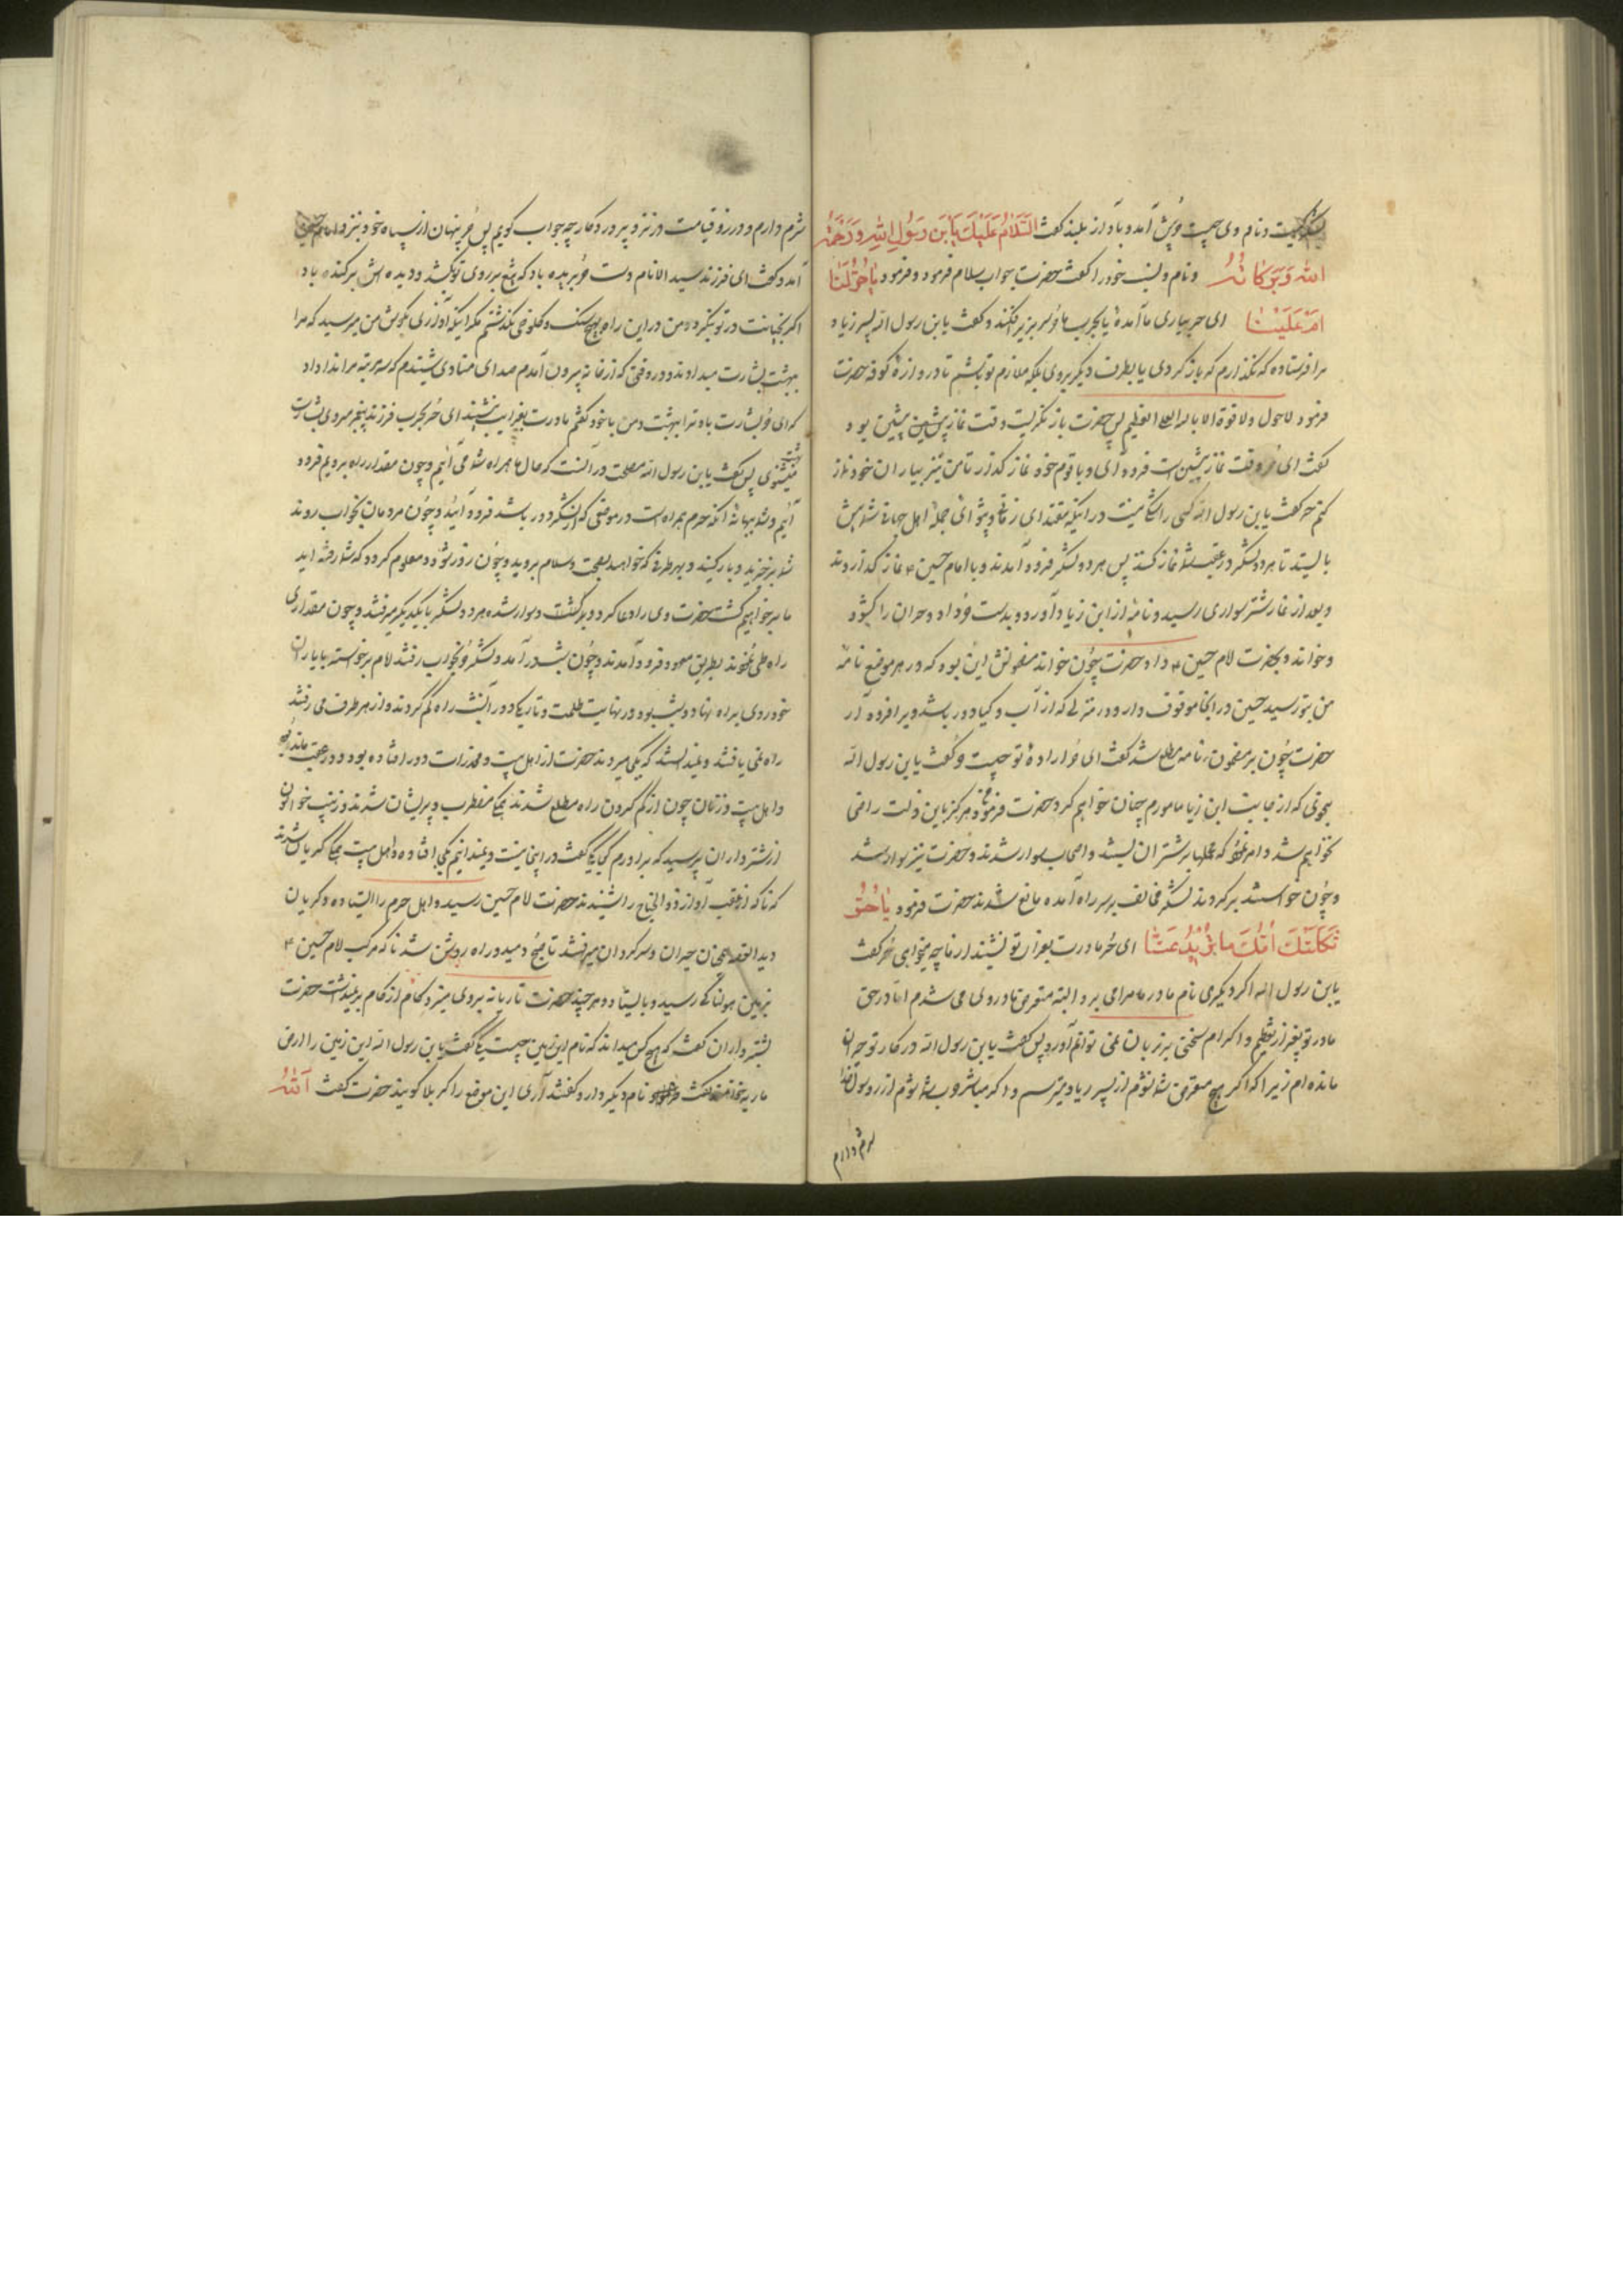 کیست و نام وی چیست حُر پیش آمد و بآواز بلند گفت اَلسَّلامُ عَلَیْكَ یَابْنَ رَسُولِ اللهِ وَ رَحْمَةُ
اللهِ وَ بَرَکاتُهُ و نام و نسب خود را گفت حضرت جواب سلام فرمود و فرمود یا حُرُّ لَنا
اَمْ عَلَیْنا ای حر بیاری ما آمدهٔ یا بحرب ما حُر سر بزیر افکند و گفت یابن رسول الله پسر زیاد
مرا فرستاده که نگذارم که باز گردی یا بطرف دیگر بروی بلکه ملازم تو باشم تا دروازهٔ کوفه حضرت
فرمود لاحول ولا قوة الا بالله العلی العظیم پس حضرت باز نگریست وقت نماز پیشین بود
گفت ای حُر وقت نماز پیشین است فرود آی و با قوم خود نماز گذار تا من نیز بیاران خود نماز
کنم حر گفت یابن رسول الله کسی را شک نیست در اینکه مقتدای زمان و پیشوای جملهٔ اهل جهان شما پیش
بایستید تا هر دو لشکر در عقب شما نماز کنند پس هر دو لشکر فرود آمدند و با امام حسین ع نماز گذاردند
و بعد از نماز شتر سواری رسید و نامهٔ از ابن زیاد آورد و بدست حُر داد و حر آن را گشود
و خواند و بحضرت امام حسین ع داد حضرت چون خواند مضمونش این بود که در هر موقع نامهٔ
من بتو رسید حسین در آنجا موقوف دار و در منزلی که از آب و گیاه دور باشد ویرا فرود آر
حضرت چون بر مضمون نامه مطلع شد گفت ای حُر ارادهٔ تو چیست حُر گفت یابن رسول الله
بنحوی که از جانب ابن زیاد مامورم چنان خواهم کرد حضرت فرمود من هرگز باین ذلت راضی
نخواهم شد و امر نمود که محملها بر شتران بستند و اصحاب سوار شدند و حضرت نیز سوار شد
و چون خواستند برگردند لشکر مخالف بر سر راه آمده مانع شدند حضرت فرمود یا حُرُّ
ثَکَلَتْكَ اُمُّكَ ما تُرِیْدُ مِنَّا ای حُر مادرت بعزای تو نشیند از ما چه میخواهی حُر گفت
یابن رسول الله اگر دیگری نام مادر ما را می برد البته متعرض مادر وی می شدم اما در حق
مادر تو بغیر از تعظیم و اکرام سخنی بر زبان نمی توانم آورد پس گفت یابن رسول الله در کار تو حیران
مانده ام زیرا که اگر هیچ معترض شما نشوم از پسر زیاد میترسم و اگر مباشر حرب شما شوم از رسول خدا
شرم دارم
شرم دارم و در روز قیامت در نزد پروردگار چه جواب گویم پس حُر پنهان از سپاه خود بنزد امام حسین
آمد و گفت ای فرزند سید الانام دست حُر بریده باد که تیغ بر روی تو کشد و دیده اش برکنده باد
اگر بخیانت در تو نگرد و من در این راه بهیچ سنگ و کلوخی نگذشتم مگر اینکه آوازی بگوش من میرسید که مرا
ببهشت بشارت میدادند و در وقتی که از خانه بیرون آمدم صدای منادی شنیدم که سه مرتبه مرا ندا داد
که ای حُر بشارت باد ترا ببهشت و من با خود گفتم مادرت بعزایت نشیند ای حُر بحرب فرزند پیغمبر میروی بشارت
بهشت میشنوی پس گفت یابن رسول الله مصلحت در آنست که حال ما همراه شما می آئیم و چون مقدار راه برویم فرود
آئیم و شما ببهانهٔ آنکه حرم همراه است در موضعی که از لشکر دور باشد فرود آئید و چون مردمان بخواب روند
شما برخیزید و بار کنید و بهر طرف که خواهید بصحت و سلام بروید و چون روز شود و معلوم گردد که شما رفته اید
ما برخواهیم گشت حضرت وی را دعا کرد و برگشت و سوار شده هر دو لشکر با یکدیگر میرفتند و چون مقداری
راه طی نمودند بطریق معهود فرود آمدند و چون شب در آمد و لشکر حُر بخواب رفتند امام برخواسته با یاران
خود روی براه نهاد و شب بود در نهایت ظلمت و تاریکی و در آن شب راه گم کردند و از هر طرف می رفتند
راه نمی یافتند و نمیدانستند که بکجا میروند حضرت از اهل بیت و مخدرات دور افتاده بود و در عقب مانده بود
و اهل بیت و زنان چون از گم کردن راه مطلع شدند همگی مضطرب و پریشان شدند و زینب خواتون
از شترداران پرسید که برادرم کجا است یکی گفت در اینجا نیست و نمیدانیم بکجا افتاده و اهل بیت همگی گریان شدند
که ناگاه از عقب آواز ذو الجناح را شنیدند حضرت امام حسین رسید و اهل حرم را ایستاده و گریان
دید القصه همچنان حیران و سرگردان میرفتند تا صبح دمید و راه روشن شد ناگاه مرکب امام حسین ع
بزمین هولناکی رسید و بایستاد و هر چند حضرت تازیانه بر وی میزد گام از گام بر نمیداشت حضرت
بشترداران گفت که هیچ کس میداند که نام این زمین چیست یکی گفت یابن رسول الله این زمین را ارض
ماریه خوانند گفت نام دیگر دارد گفتند آری این موضع را کربلا گویند حضرت گفت اَللهُ